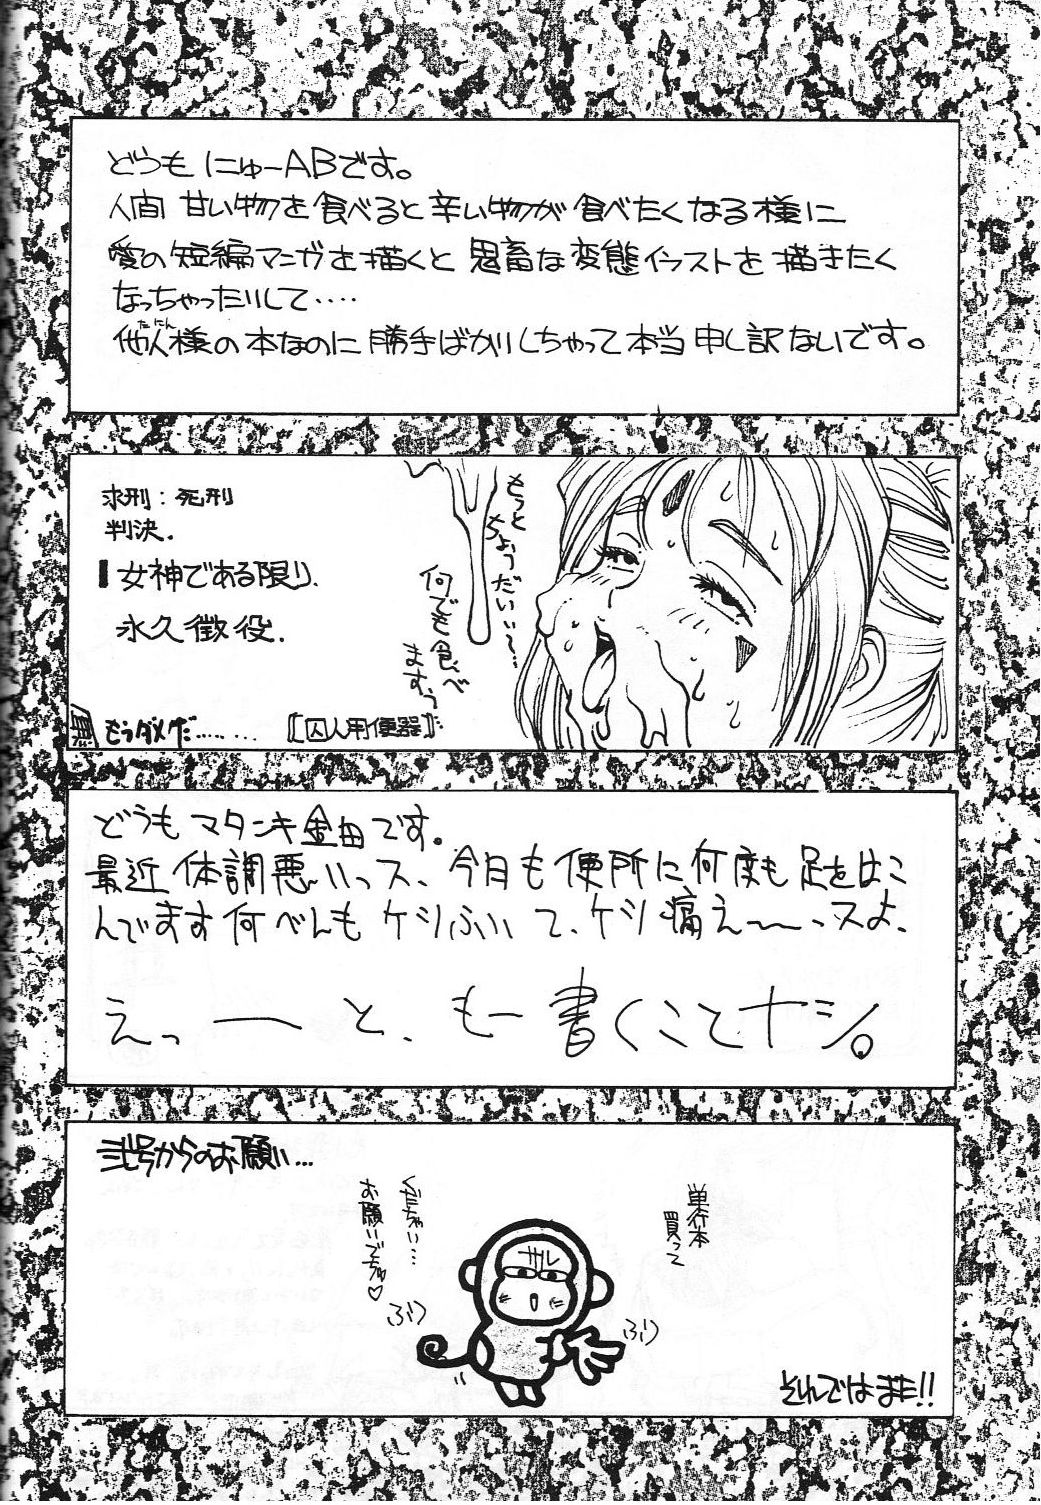 どうも にゅーABです。
人間 甘い物を食べると辛い物が食べたくなる様に
愛の短編マンガを描くと鬼畜な変態イラストを描きたく
なっちゃったりして‥‥
他人様の本なのに勝手ばかりしちゃって本当申し訳ないです。
たにん
求刑：死刑
判決.
女神である限り.
永久懲役.
もっと
ちょうだいい〜…
何でも食べ
ますっ
もうダメだ………
〖囚人用便器〗
どうもマタンキ金田です。
最近体調悪いっス、今日も便所に何度も足をはこ
んでます何べんもケツふいて、ケツ痛え〜〜っスよ、
えっーと、もー書くことナシ。
弐号からのお願い…
単行本
買って
くだちゃい…
お願いでちゅ♡
サル
ぷり
ぷり
それではまた!!